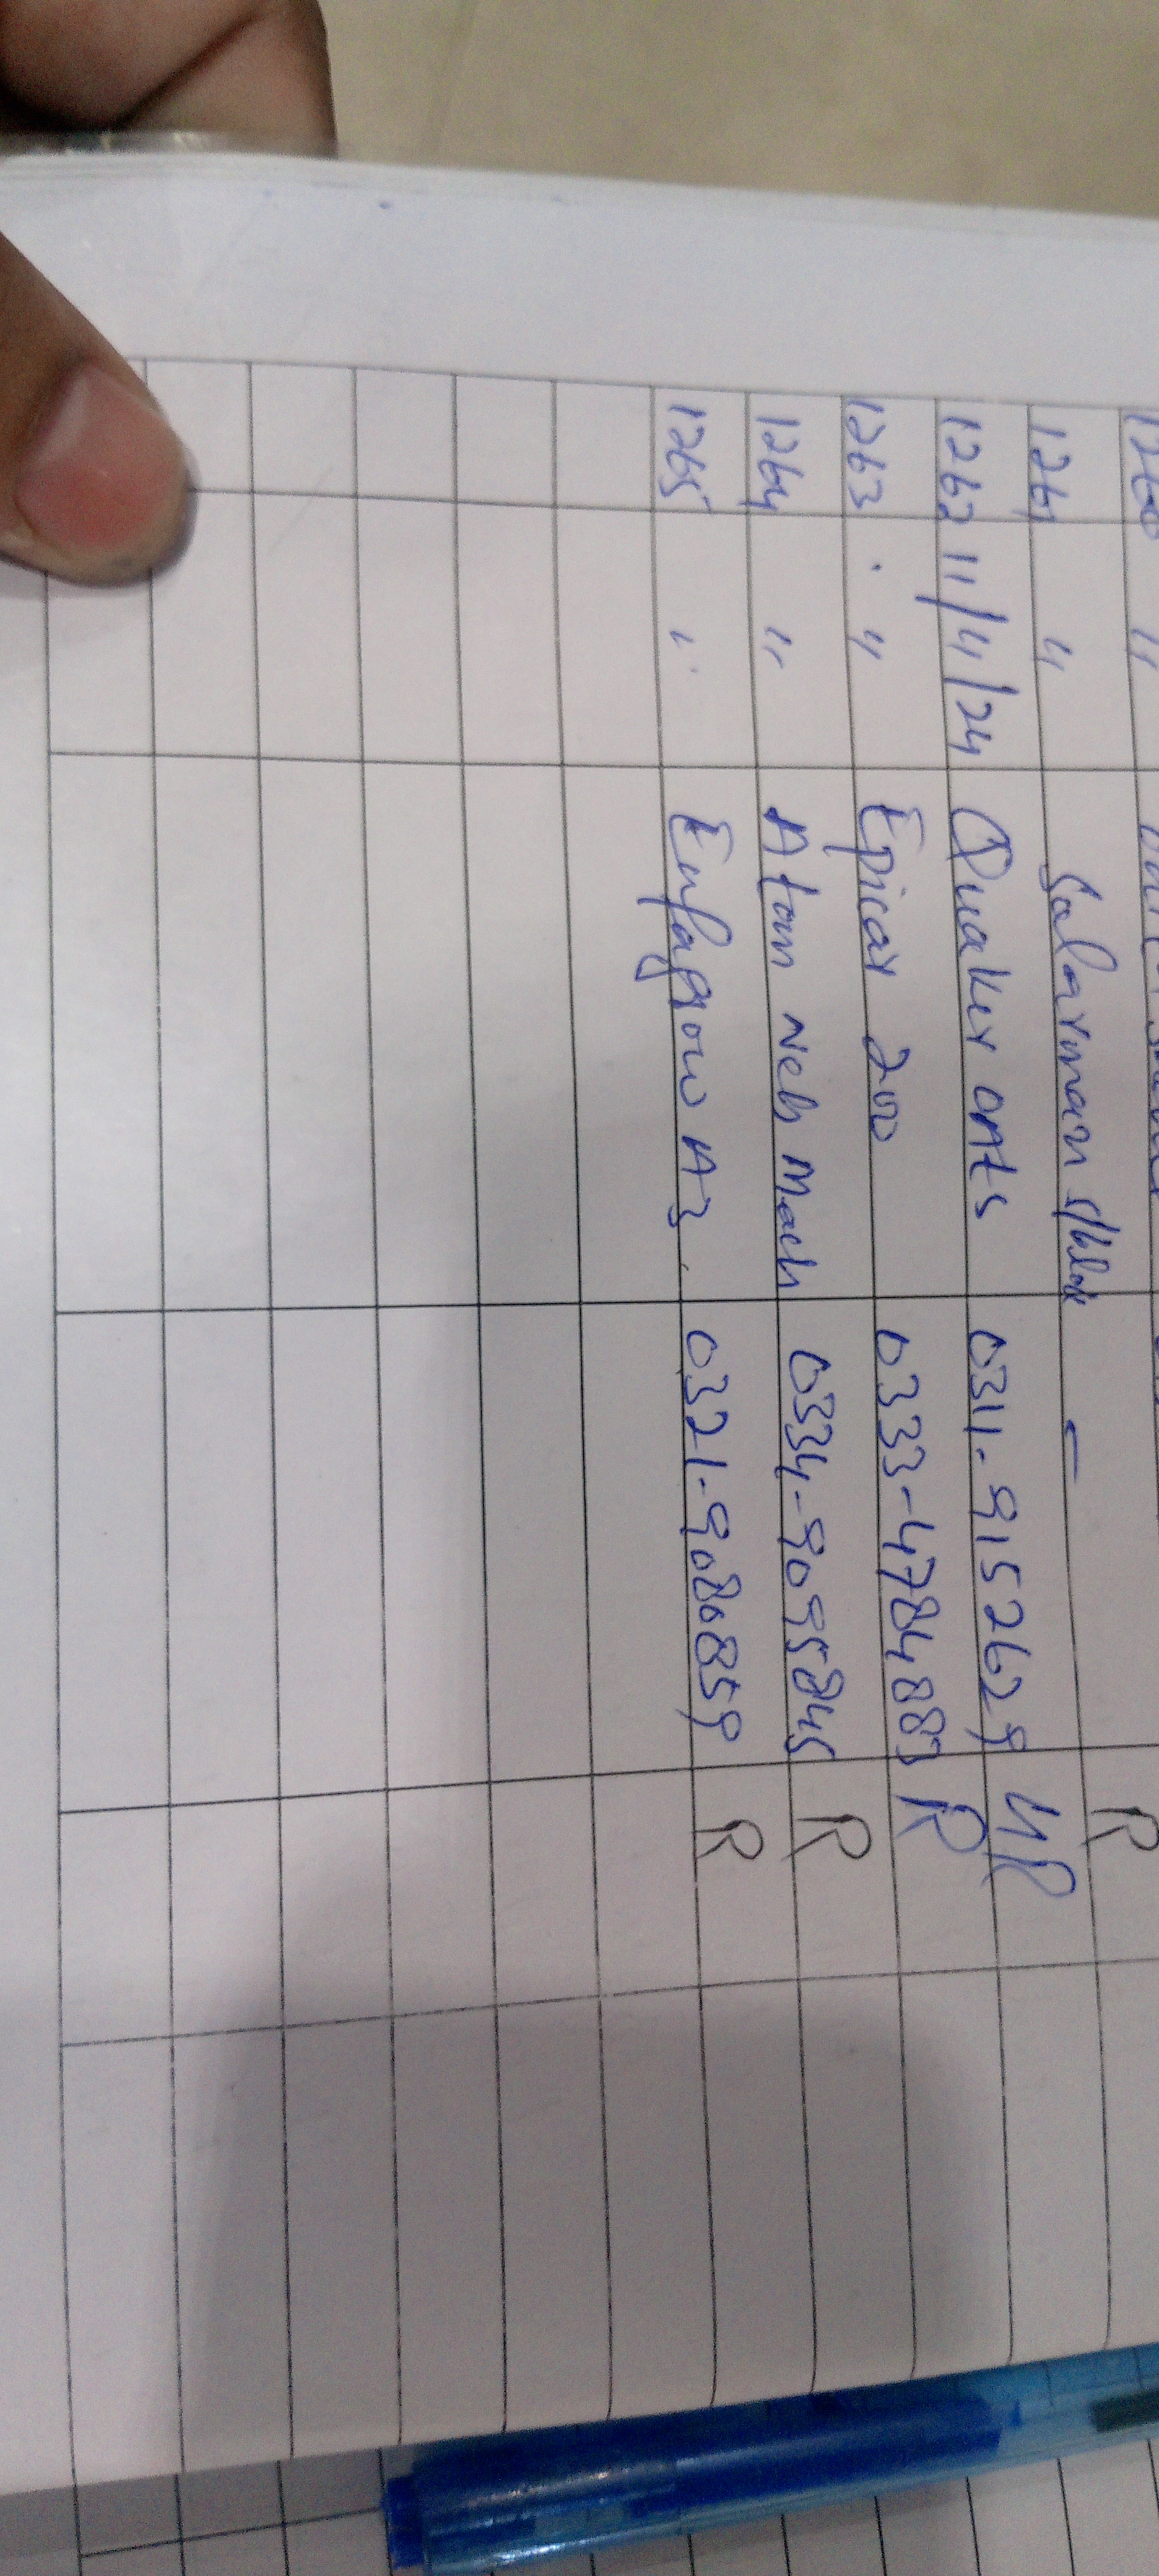 1260 "
1261 " Solarman s/blok — R
1262 11/4/24 Quaker OAts 0311-9152629 UR
1263 " Epicar 200 0333-4784883 R
1264 " Atom Neb Mach 0334-9095845 R
1265 " Enfagrow A3. 0321-9080859 R